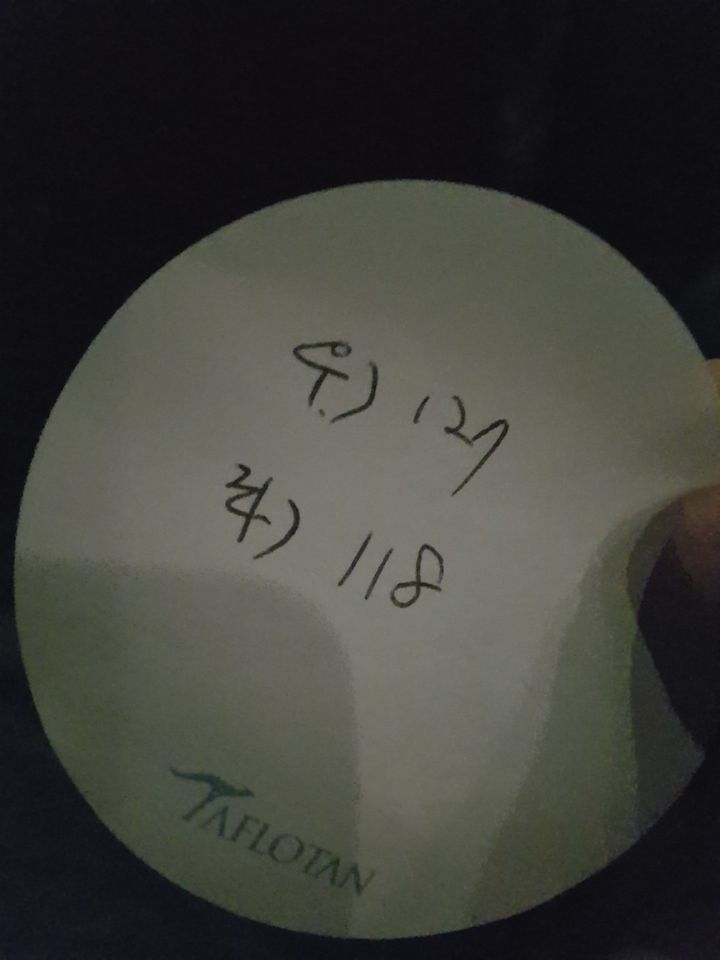 우) 127
좌) 118
TAFLOTAN